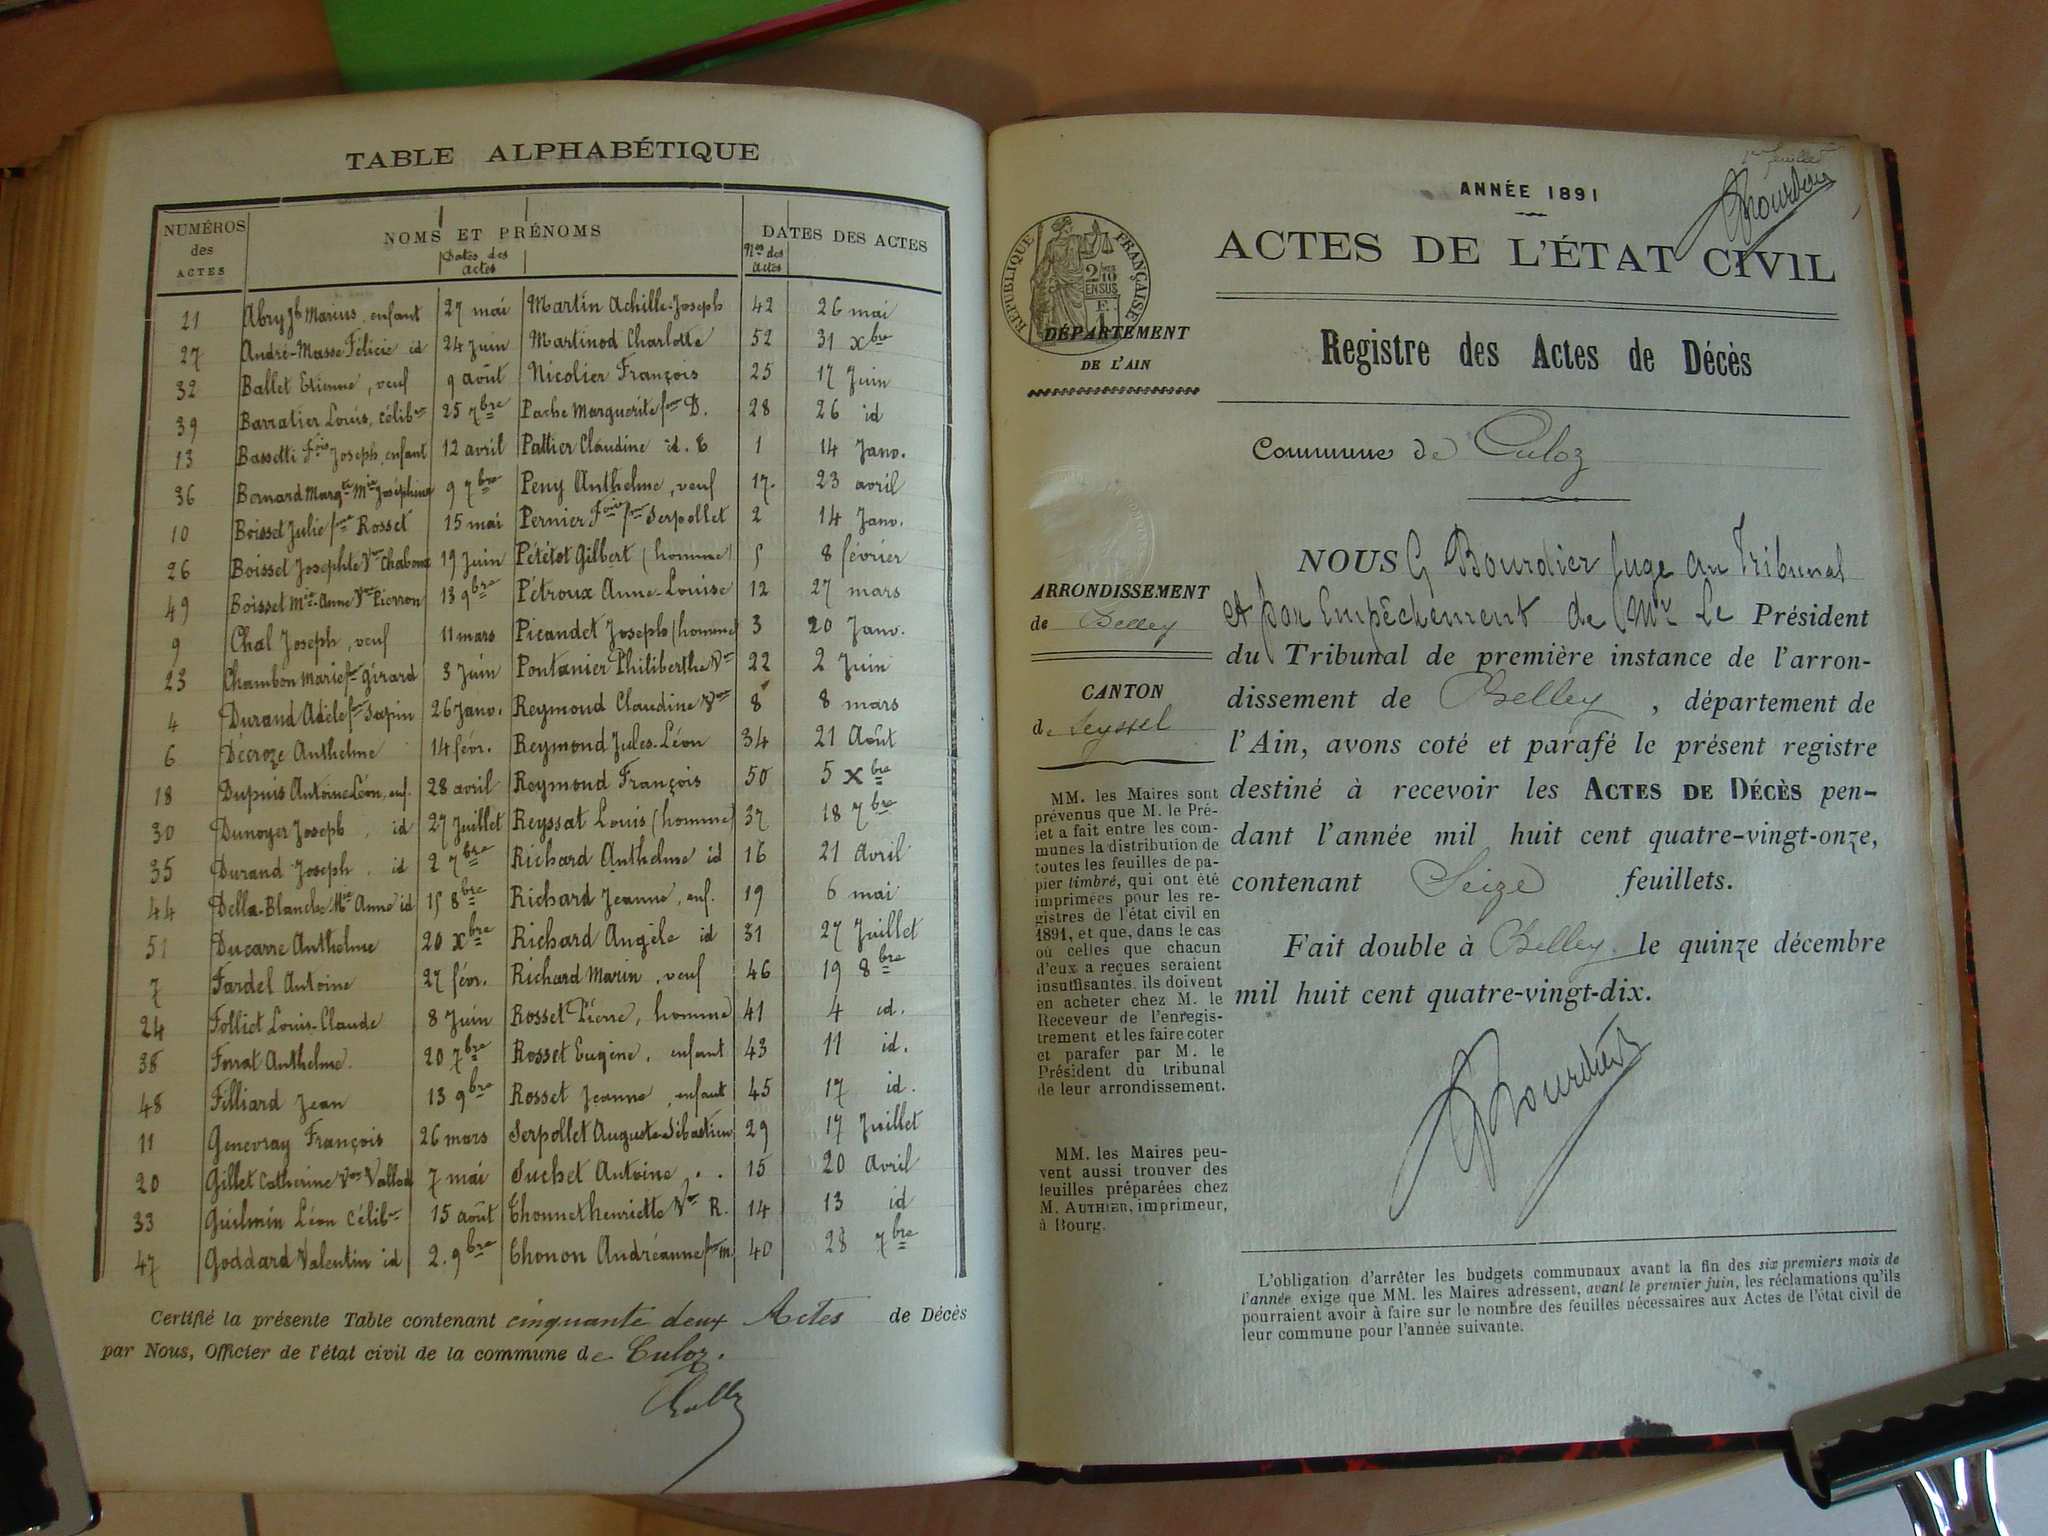 TABLE ALPHABÉTIQUE
NUMÉROS des ACTES | NOMS ET PRÉNOMS | Dates des actes | Nos des actes | DATES DES ACTES
21 Abry Jh Marius, enfant 27 mai Martin Achille-Joseph 42 26 mai
27 André-Masse Félicie id 24 Juin Martinod Charlotte 52 31 Xbre
32 Ballet Etienne, veuf 9 août Nicolier François 25 17 Juin
39 Barratier Louis, célibre 25 7bre Pache Marguerite fme D. 28 26 id
13 Bassetti Fois Joseph, enfant 12 avril Pattier Claudine id. E 1 14 Janv.
36 Bernard Margte Mie Joséphine 9 7bre Peny Anthelme, veuf 17. 23 avril
10 Boisset Julie fme Rosset 15 mai Pernier Foise fme Serpollet 2 14 Janv.
26 Boisset Josephte Vve Chaboux 19 Juin Pététot Gilbert (homme) 5 8 février
49 Boisset Mie-Anne Vve Pierron 13 9bre Pétroux Anne-Louise 12 27 mars
9 Chal Joseph, veuf 11 mars Picandet Joseph (homme) 3 20 Janv.
23 Chambon Marie fme Girard 3 Juin Pontanier Philiberthe Vve 22 2 Juin
4 Durand Adèle fme Sapin 26 Janv. Reymond Claudine Vve 8 8 mars
6 Décroze Anthelme 14 févr. Reymond Jules-Léon 34 21 Août
18 Dupuis Antoine Léon, enf. 28 avril Reymond François 50 5 Xbre
30 Dunoyer Joseph, id 27 Juillet Reyssat Louis (homme) 37 18 7bre
35 Durand Joseph, id 2 7bre Richard Anthelme id 16 21 Avril
44 Della-Blanche Mie Anne id 15 8bre Richard Jeanne, enf. 19 6 mai
51 Ducarre Anthelme 20 Xbre Richard Angèle id 31 27 Juillet
7 Fardel Antoine 27 févr. Richard Marin, veuf 46 19 8bre
24 Folliet Louis-Claude 8 Juin Rosset Pierre, homme 41 4 id.
38 Forrat Anthelme. 20 7bre Rosset Eugène, enfant 43 11 id.
48 Filliard Jean 13 9bre Rosset Jeanne, enfant 45 17 id.
11 Genevray François 26 mars Serpollet Auguste-Sébastien 29 17 Juillet
20 Gillet Catherine Vve Vallod 7 mai Suchet Antoine 15 20 Avril
33 Guilmin Léon célibre 15 août Thonnet henriette Vve R. 14 13 id
47 Goddard Valentin id 2. 9bre Thonon Andréanne fme m. 40 28 7bre
Certifié la présente Table contenant cinquante deux Actes de Décès
par Nous, Officier de l'état civil de la commune de Culoz.
1er feuillet
ANNÉE 1891
ACTES DE L'ÉTAT CIVIL
RÉPUBLIQUE FRANÇAISE
2/10 EN SUS
DÉPARTEMENT
DE L'AIN
Registre des Actes de Décès
Commune de Culoz
ARRONDISSEMENT
de Belley
CANTON
de Seyssel
MM. les Maires sont
prévenus que M. le Pré-
fet a fait entre les com-
munes la distribution de
toutes les feuilles de pa-
pier timbré, qui ont été
imprimées pour les re-
gistres de l'état civil en
1891, et que, dans le cas
où celles que chacun
d'eux a reçues seraient
insuffisantes, ils doivent
en acheter chez M. le
Receveur de l'enregis-
trement et les faire coter
et parafer par M. le
Président du tribunal
de leur arrondissement.
MM. les Maires peu-
vent aussi trouver des
feuilles préparées chez
M. AUTHIER, imprimeur,
à Bourg.
NOUS G Bourdier Juge au Tribunal
et par Empêchement de Mr Le Président
du Tribunal de première instance de l'arron-
dissement de Belley, département de
l'Ain, avons coté et parafé le présent registre
destiné à recevoir les ACTES DE DÉCÈS pen-
dant l'année mil huit cent quatre-vingt-onze,
contenant Seize feuillets.
Fait double à Belley, le quinze décembre
mil huit cent quatre-vingt-dix.
GBourdier
L'obligation d'arrêter les budgets communaux avant la fin des six premiers mois de
l'année exige que MM. les Maires adressent, avant le premier juin, les réclamations qu'ils
pourraient avoir à faire sur le nombre des feuilles nécessaires aux Actes de l'état civil de
leur commune pour l'année suivante.